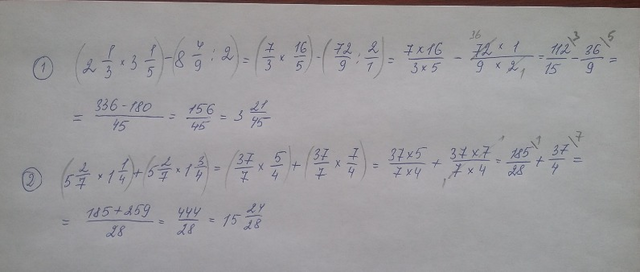 ① (2 1/3 × 3 1/5) - (8 4/9 : 2) = (7/3 × 16/5) - (72/9 : 2/1) = 7×16/3×5 - 36 72×1/9×2 1 = 112/15 \3 - 36/9 \5 =
= 336-180/45 = 156/45 = 3 21/45
② (5 2/7 × 1 1/4) + (5 2/7 × 1 3/4) = (37/7 × 5/4) + (37/7 × 7/4) = 37×5/7×4 + 37×7 1/1 7×4 = 185/28 \1 + 37/4 \7 =
= 185+259/28 = 444/28 = 15 24/28